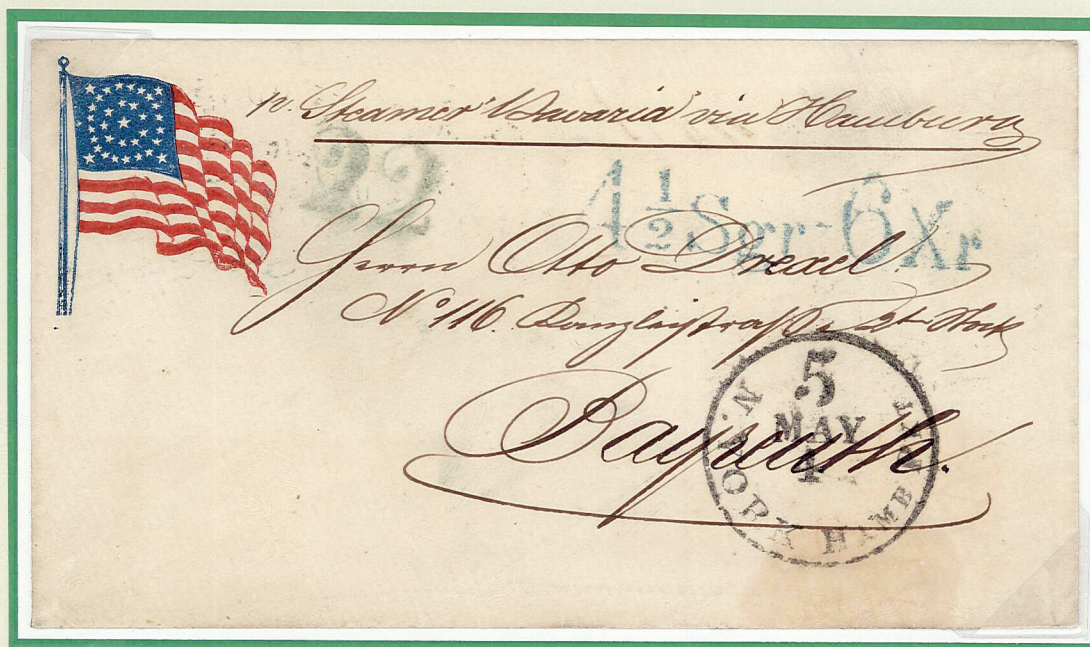 p. Steamer "Bavaria" via Hamburg
22
1 1/2 Sgr-6 Xr
Herrn Otto Drexel.
No 116. Kanzleistraße 2t Stock
Bayreuth.
N. YORK HAMB. PKT.
5
MAY
1